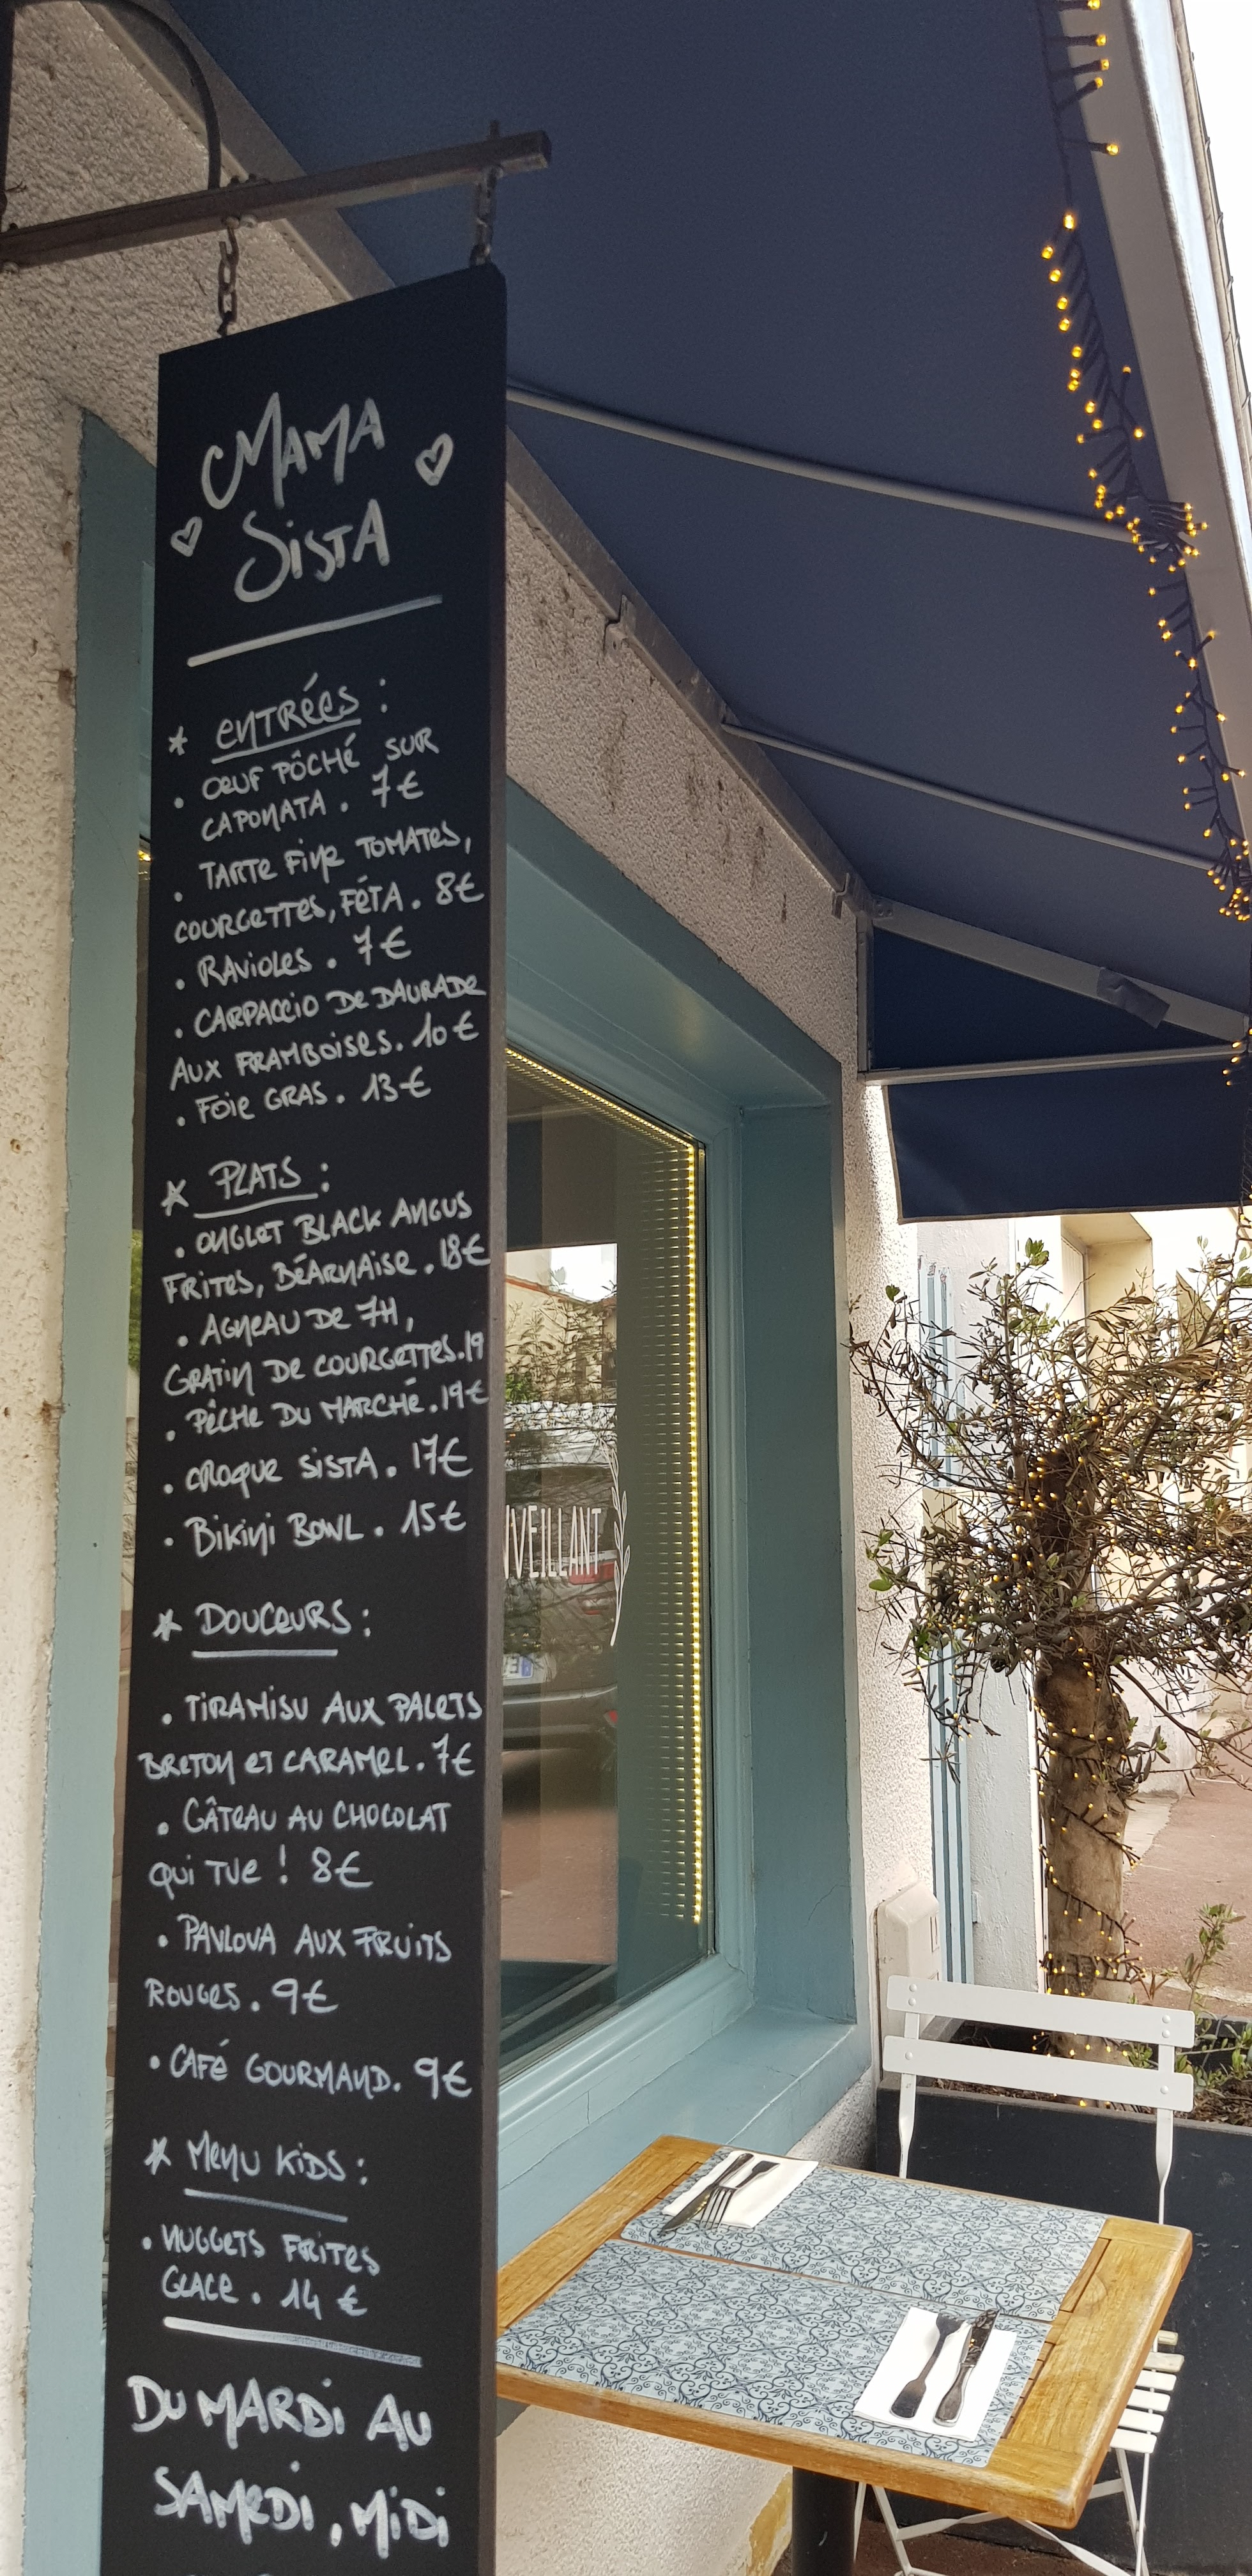 MAMA
SISTA
* entrées :
. OEUF PÔCHÉ SUR
CAPONATA . 7€
. TARTE FINE TOMATES,
COURGETTES, FÉTA . 8€
. RAVIOLES . 7€
. CARPACCIO DE DAURADE
AUX FRAMBOISES . 10€
. FOIE GRAS . 13€
* PLATS :
. ONGLET BLACK ANGUS
FRITES, BÉARNAISE . 18€
. AGNEAU DE 7H,
GRATIN DE COURGETTES . 19
. PÊCHE DU MARCHÉ . 19€
. CROQUE SISTA . 17€
. BIKINI BOWL . 15€
* DOUCEURS :
. TIRAMISU AUX PALETS
BRETON ET CARAMEL . 7€
. GÂTEAU AU CHOCOLAT
QUI TUE ! 8€
. PAVLOVA AUX FRUITS
ROUGES . 9€
. CAFÉ GOURMAND . 9€
* MENU KIDS :
. NUGGETS FRITES
GLACE . 14 €
DU MARDI AU
SAMEDI, MIDI
VEILLANT